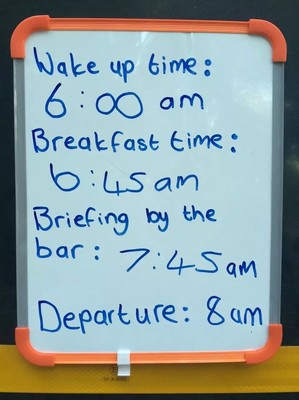 Wake up time:
6:00 am
Breakfast time:
6:45 am
Briefing by the
bar: 7:45 am
Departure: 8 am